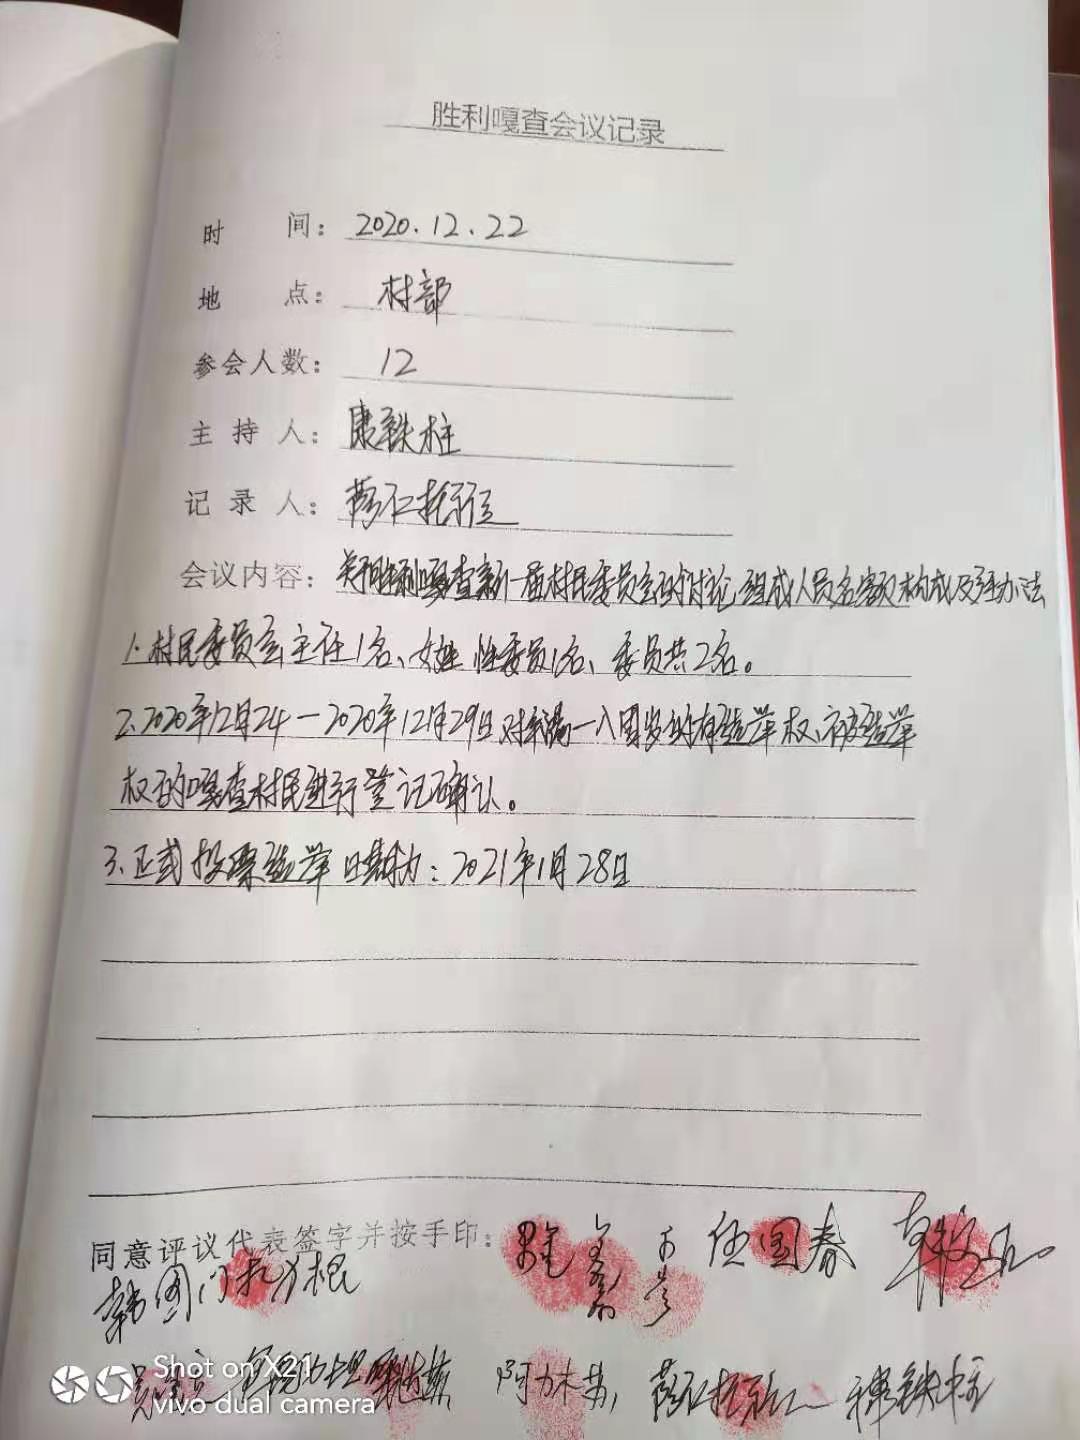 胜利嘎查会议记录
时 间：2020.12.22
地 点：村部
参会人数：12
主 持 人：康铁柱
记 录 人：仁
会议内容：关于胜利嘎查新一届村民委员会的讨论组成人员名额构成及产生办法
1.村民委员会主任1名、女性委员1名、委员共2名。
2.2020年12月24—2020年12月29日对年满一八周岁的有选举权、被选举
权的嘎查村民进行登记确认。
3.正式投票选举日期为：2021年1月28日
同意评议代表签字并按手印：
伍国春
韩图门 根
阿力木苏
铁柱
Shot on X21
vivo dual camera